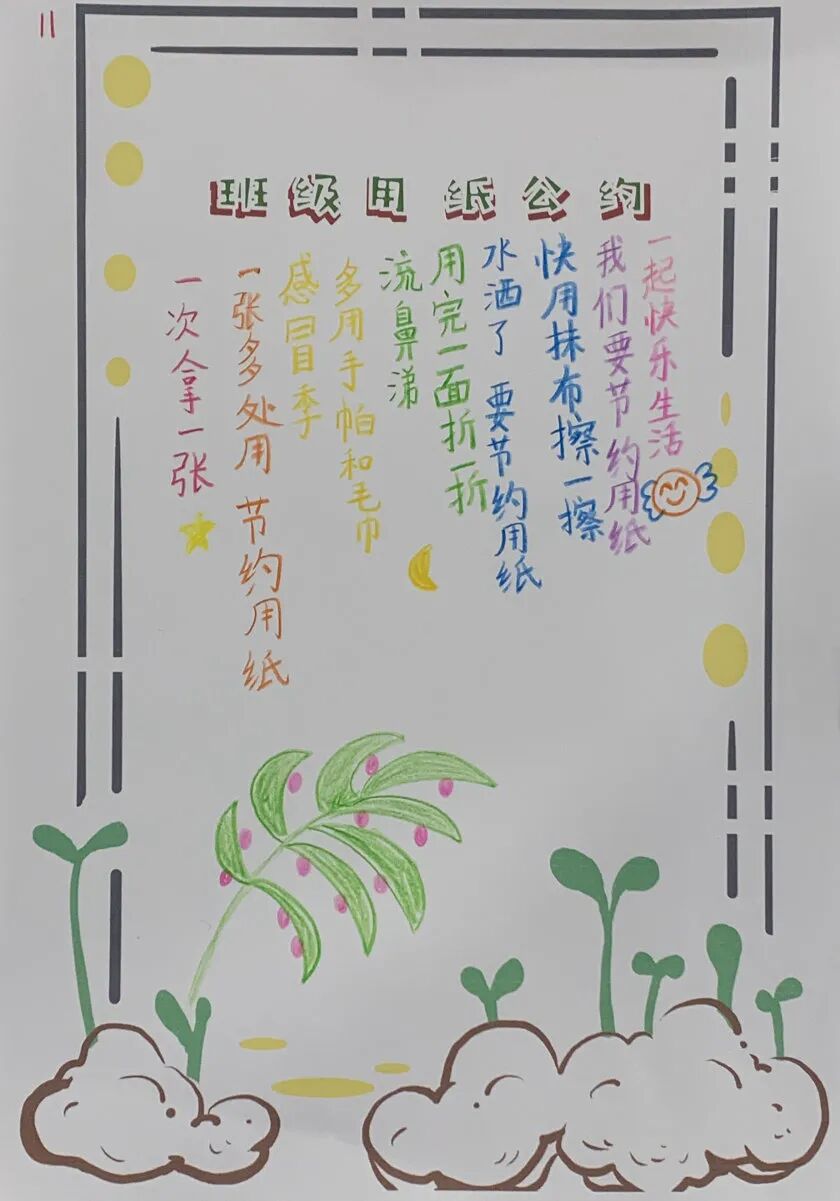 11
班级用纸公约
一次拿一张
一张多处用 节约用纸
感冒季
多用手帕和毛巾
流鼻涕
用完一面折一折
水洒了 要节约用纸
快用抹布擦一擦
我们要节约用纸
一起快乐生活